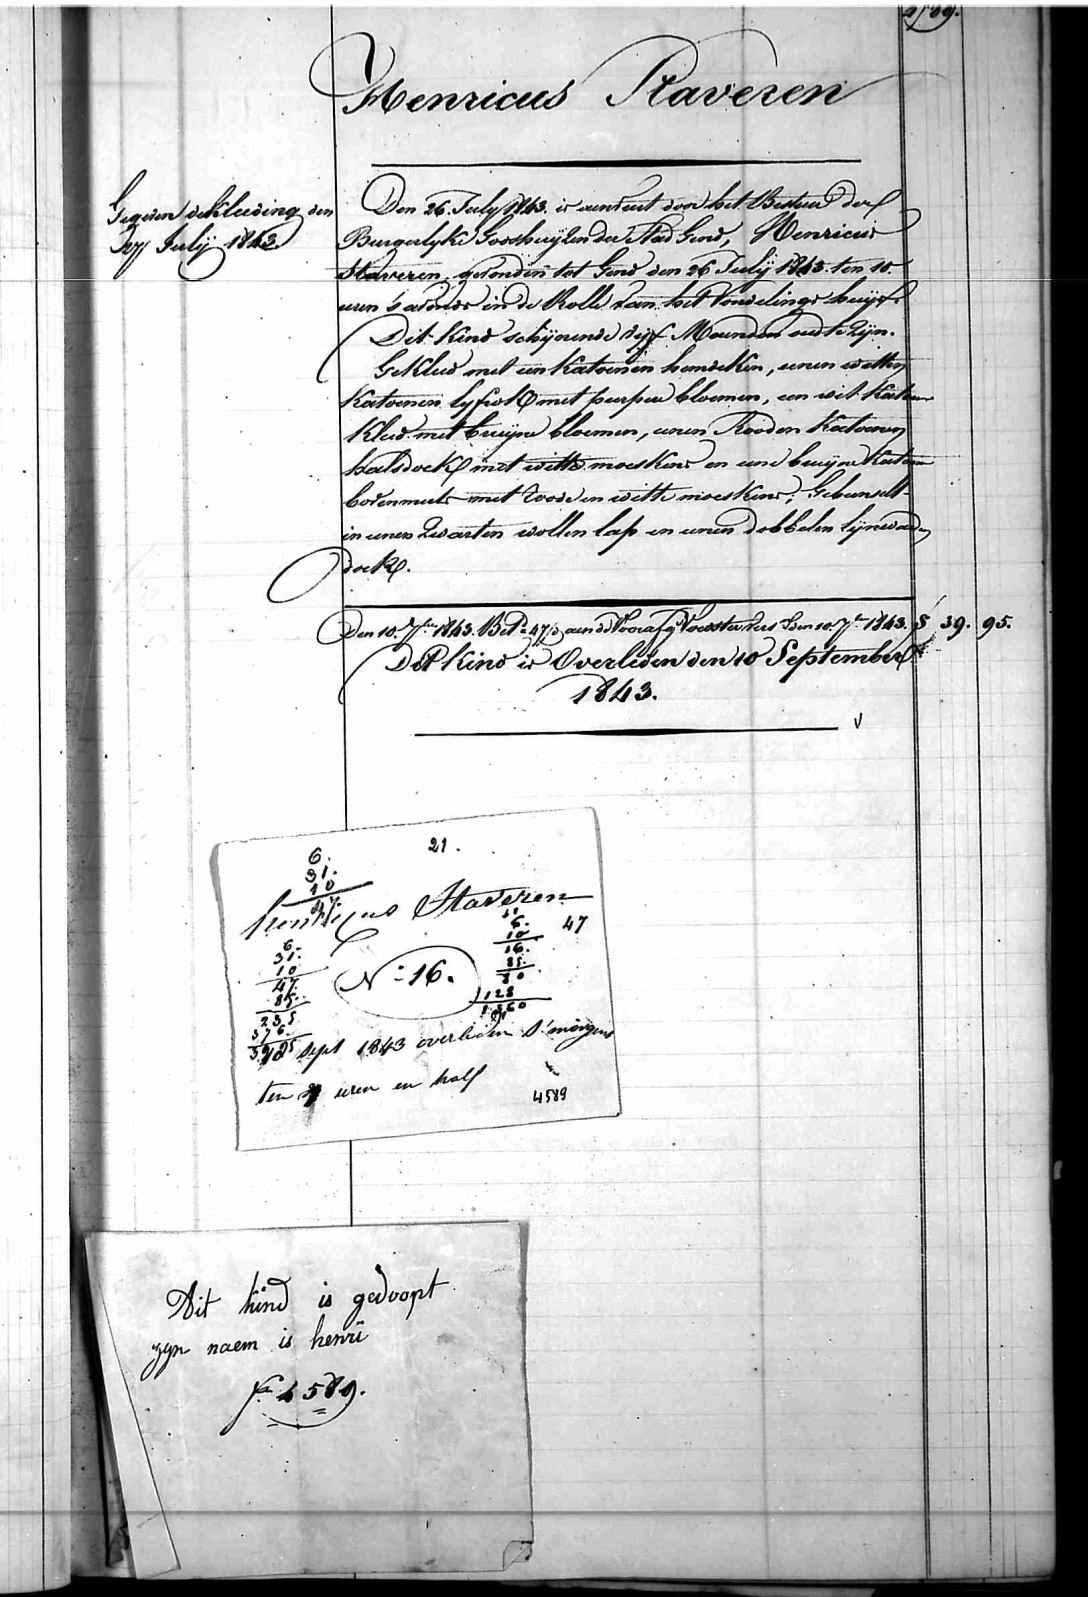 Henricus Staveren
Gegeven de kleeding den
27 Julij 1843
Den 26 July 1843 is aenveert door het Bestuer der
Burgerlyke Godshuyzen der Stad Gend, Henricus
Staveren, gevonden tot Gend den 26 Julij 1843 ten 10
uren s'avonds in de Rolle van het Vondelinge huys
Dit Kind schijnende vyf Maenden oud te zijn.
Gekleed met een Katoenen hemdeken, eenen witten
Katoenen lyfrok met purper bloemen, een wit Katoen
Kleed met bruyne bloemen, eenen Rooden Katoenen
halsdoek met witte moeskens en eene bruyne Katoen
bovenmuts met roode en witte moeskens; Gebunselt
in eenen Zwarten wollen lap en eenen dobbelen lijnwaden
doek.
Den 10 7bre 1843. Bet. 47 d. aen de Voedster ters den 10. 7bre 1843. f 39. 95.
Dit Kind is Overleden den 10 September
1843.
6. 21.
31.
10
47
henricus Staveren
6.
31.
10
47.
85.
235
376.
39,95
N° 16.
31
6.
10 47
16.
85.
80
128
1360
10 sept 1843 overleden s'morgens
ten 7 uren en half
4589
Dit kind is gedoopt
zyn naem is henri
N° 4589.